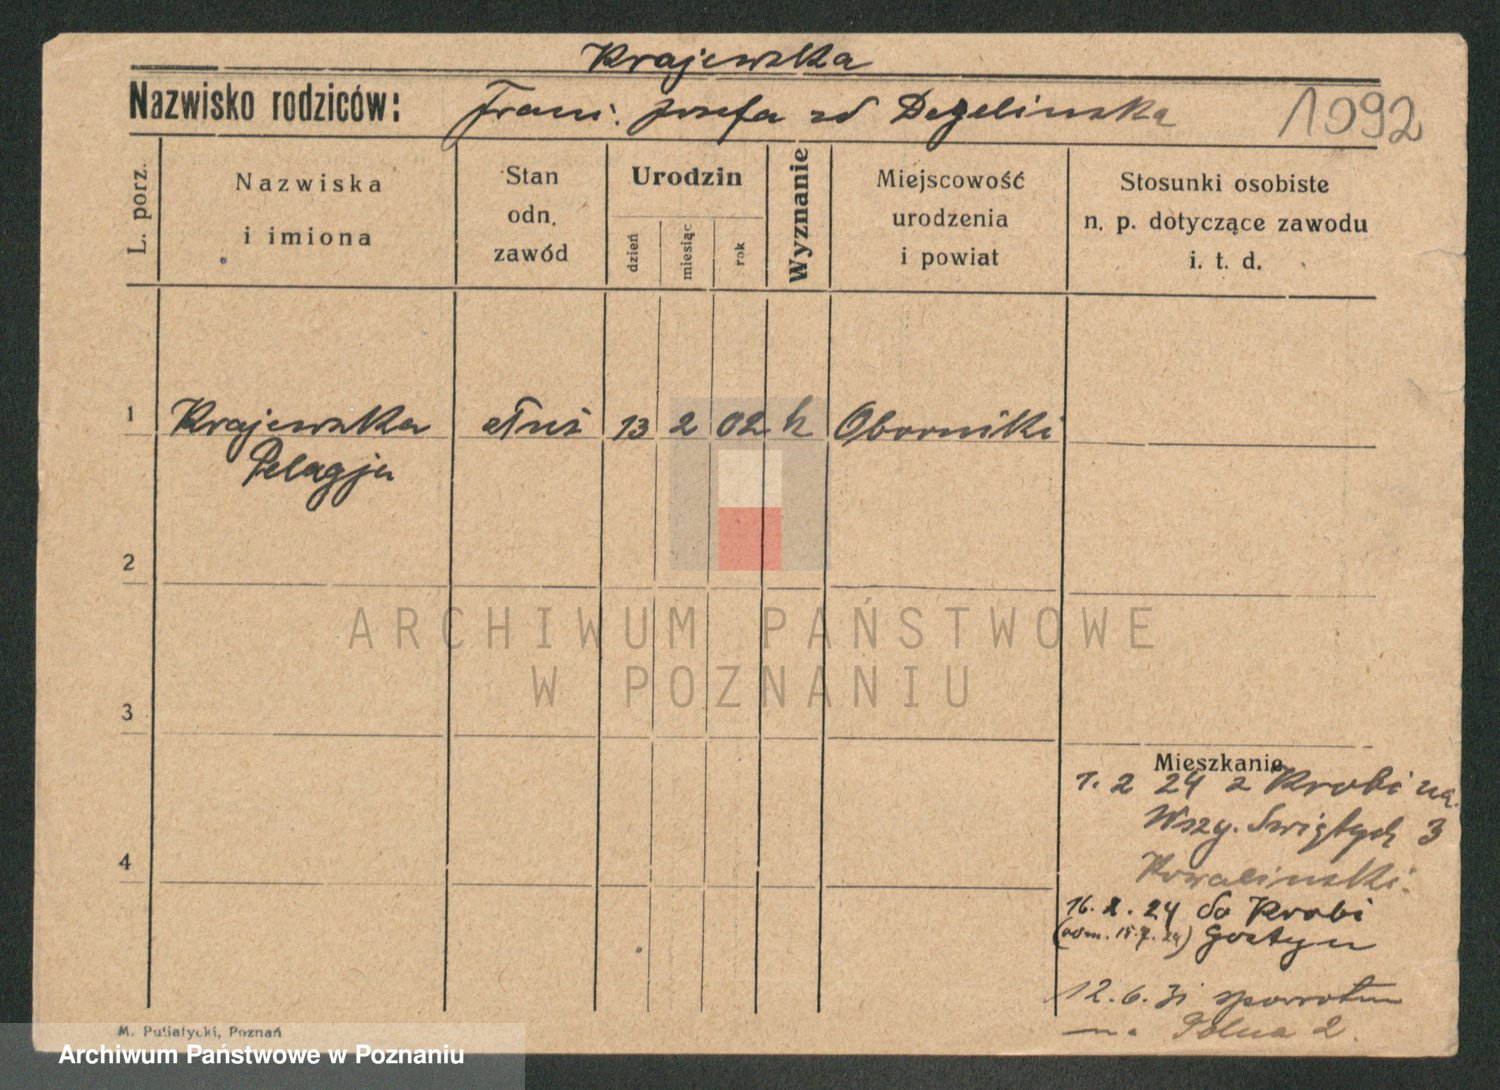 Krajewska
Nazwisko rodziców: Franc. Józefa zd Degelinska
1092
L. porz.
Nazwiska
i imiona
Stan
odn.
zawód
Urodzin
dzień
miesiąc
rok
Wyznanie
Miejscowość
urodzenia
i powiat
Stosunki osobiste
n. p. dotyczące zawodu
i. t. d.
1 Krajewska 13 2 02 k Oborniki
Pelagja
2
ARCHIWUM PAŃSTWOWE
W POZNANIU
3
Mieszkanie
1. 2 24 z Krobi na
Wszy. Świętych 3
Kowalinski.
4
16. 2. 24 do Krobi
15.7.24) Gostyn
12. 6. 31 spowrotem
na Polna 2.
M. Putiatycki, Poznań
Archiwum Państwowe w Poznaniu